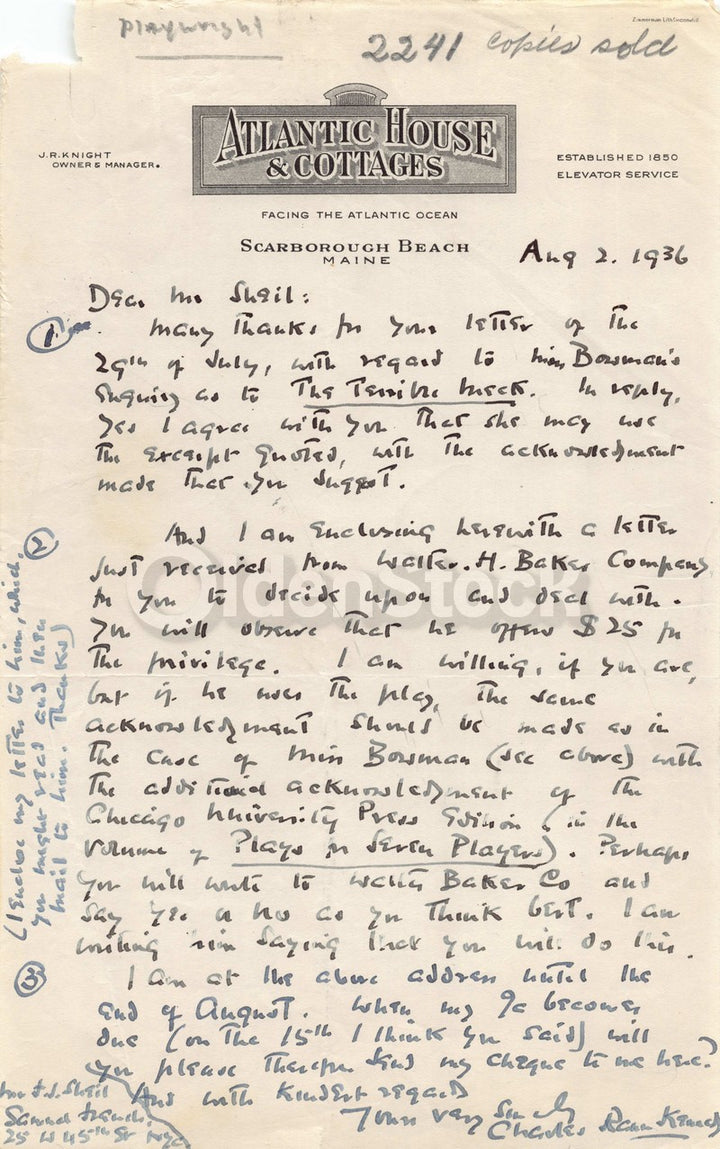 Playwright
2241 copies sold
Zimmerman Litho
ATLANTIC HOUSE
& COTTAGES
J. R. KNIGHT
OWNER & MANAGER.
ESTABLISHED 1850
ELEVATOR SERVICE
FACING THE ATLANTIC OCEAN
SCARBOROUGH BEACH
MAINE
Aug 2. 1936
Dear Mr Sheil:
1
Many thanks for your letter of the
29th of July, with regard to Miss Bowman's
enquiry as to The Terrible Meek. In reply,
yes I agree with you that she may use
the excerpt quoted, with the acknowledgment
made that you suggest.
2
And I am enclosing herewith a letter
just received from Walter. H. Baker Company
for you to decide upon and deal with.
You will observe that he offers $25 for
the privilege. I am willing, if you are,
but if he uses the play, the same
acknowledgment should be made as in
the case of Miss Bowman (see above) with
the additional acknowledgment of the
Chicago University Press Edition (in the
volume of Plays for Seven Players). Perhaps
you will write to Walter Baker Co and
say yes or no as you think best. I am
writing him saying that you will do this.
(I enclose my letter to him, which
you might read and then
mail to him. Thanks)
3
I am at the above address until the
end of August. When my a/c becomes
due (on the 15th I think you said) will
you please therefore send my cheque to me here?
And with kindest regards
Yours very sincerely
Charles Rann Kennedy
Mr F. J. Sheil
Samuel French,
25 W 45th St NYC
OldenStock